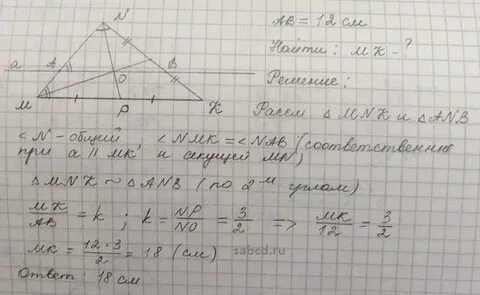 N
AB = 12 см
Найти: МК - ?
Решение:
a
A
B
O
M
P
K
Рассм △ MNK и △ANB
< N - общий < NMK = < NAB (соответственно
при a || MK и секущей MN)
△ MNK ~ △ANB (по 2ᵘ углам)
MK/AB = k ; k = NP/NO = 3/2 => MK/12 = 3/2
MK = 12·3/2 = 18 (см)
sabcd.ru
Ответ: 18 см